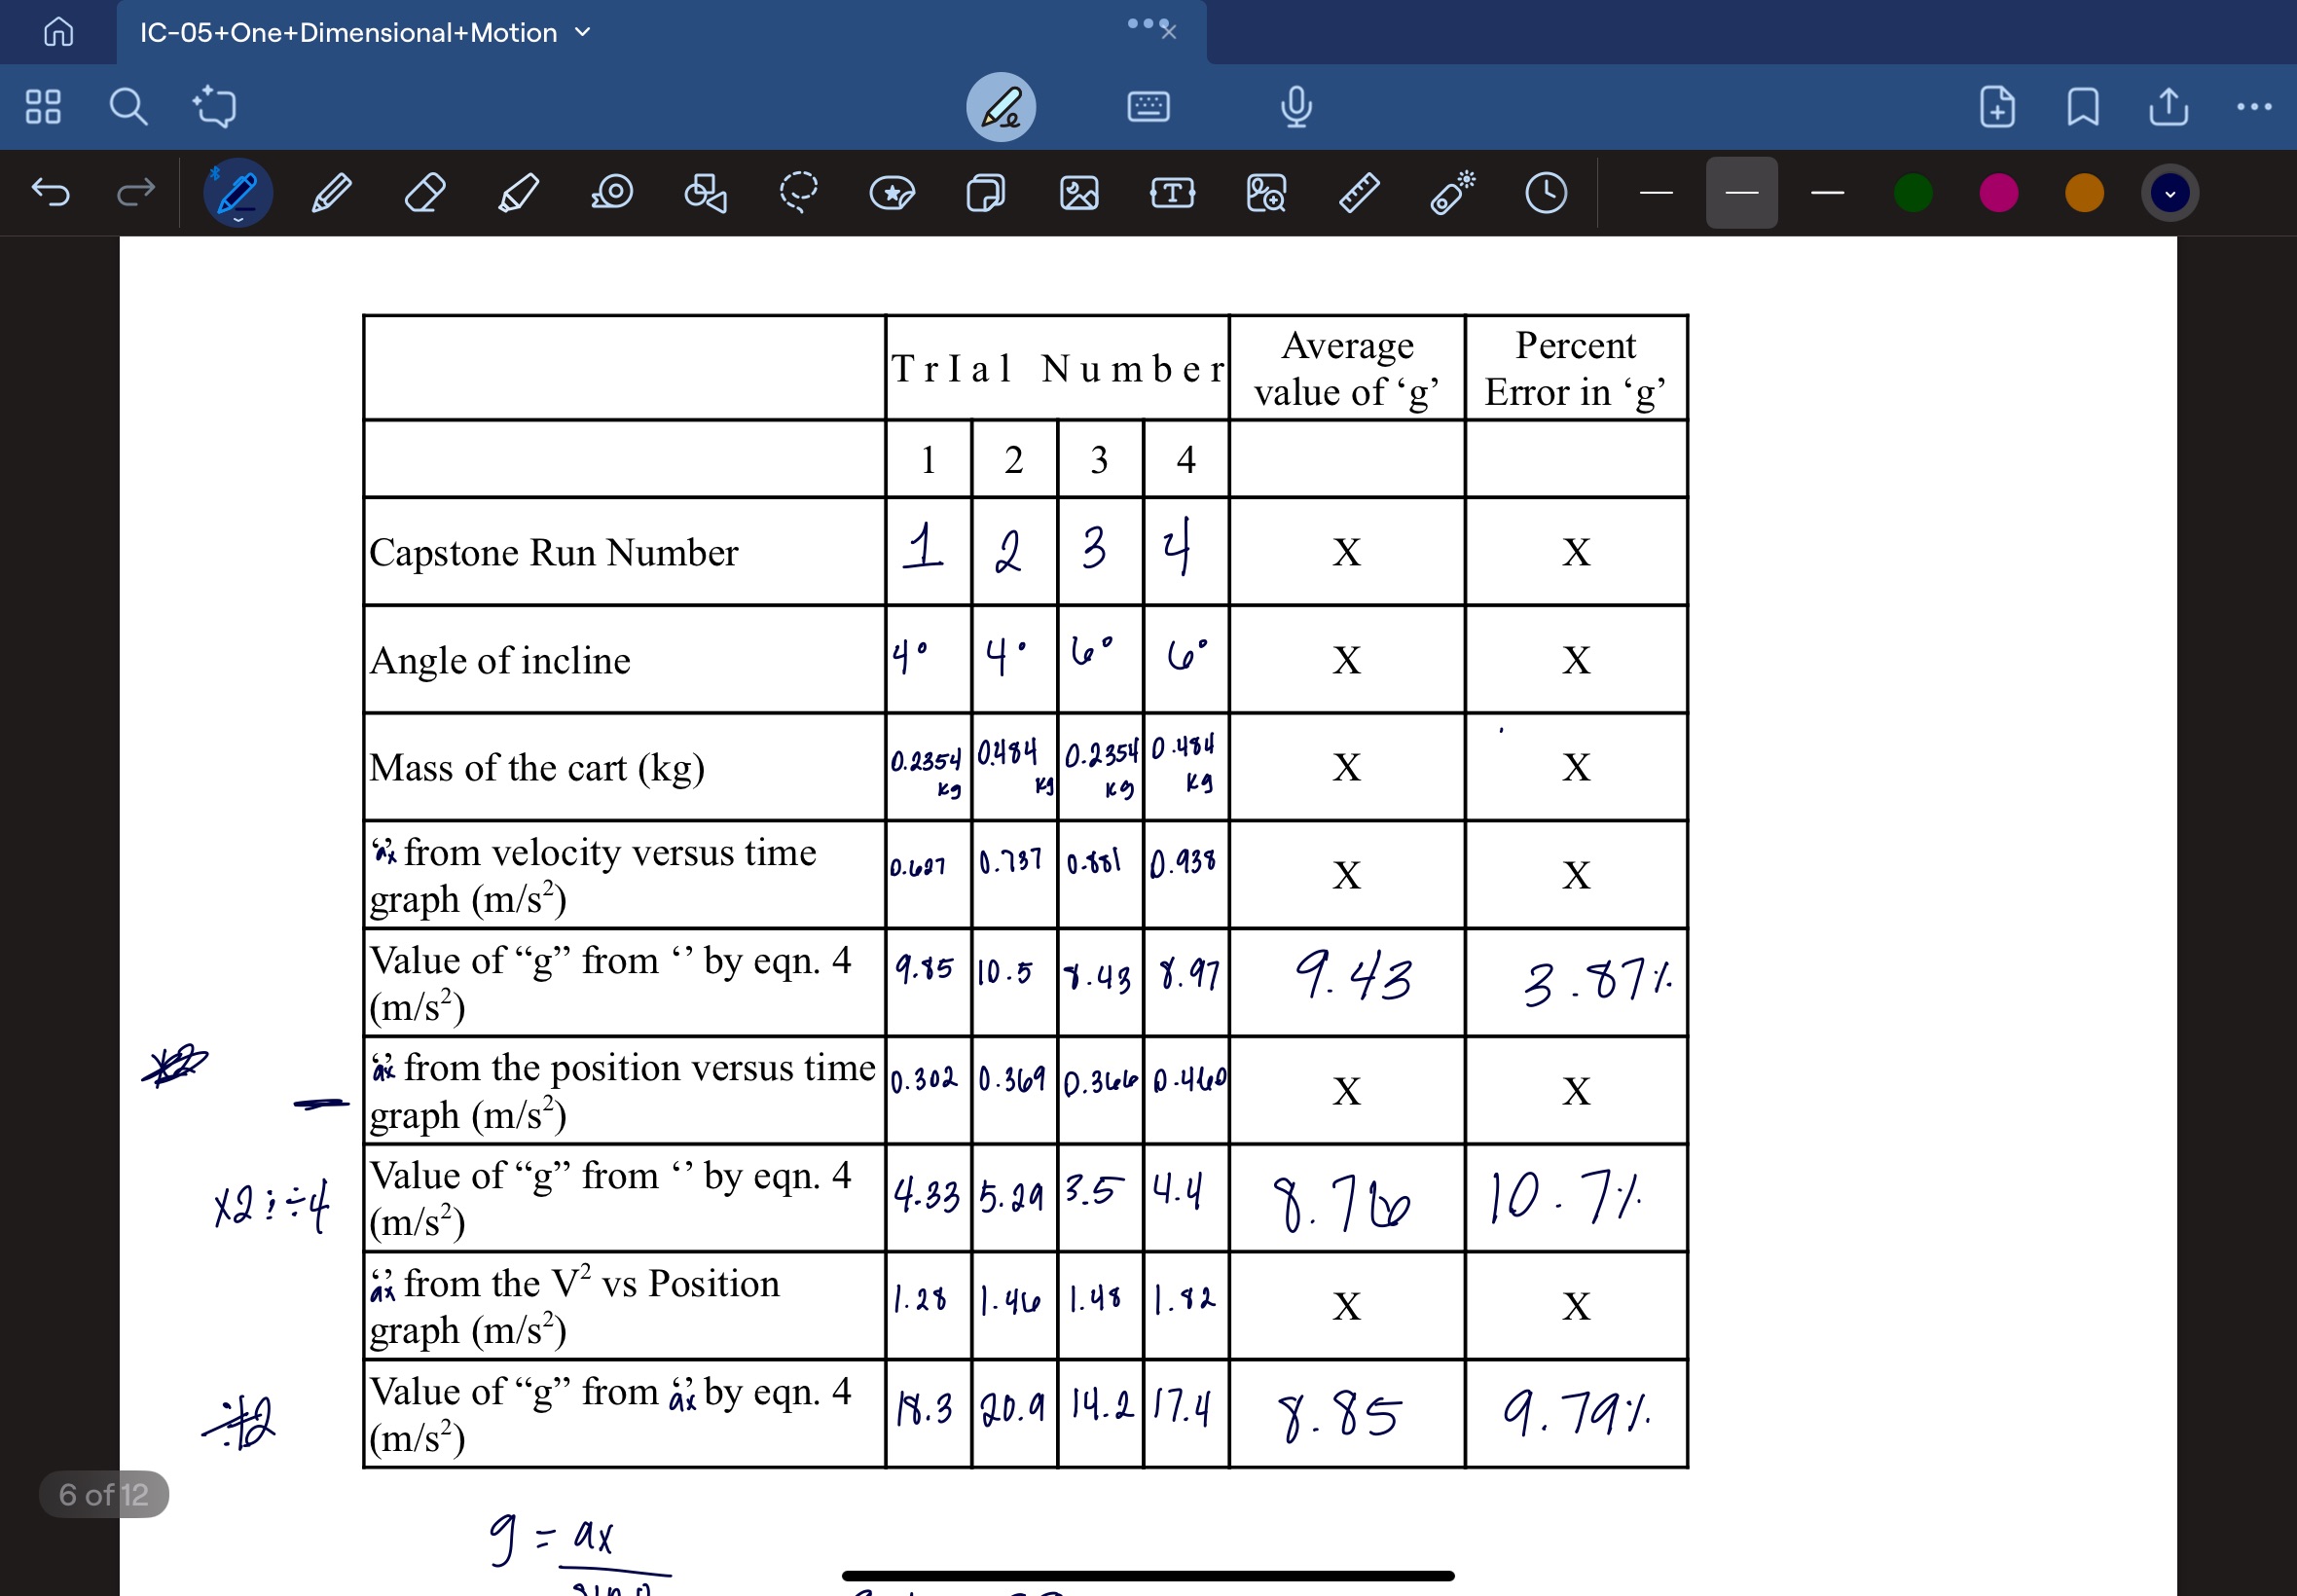 IC-05+One+Dimensional+Motion
TrIal Number
Average
value of ‘g’
Percent
Error in ‘g’
1 2 3 4
Capstone Run Number 1 2 3 4 X X
Angle of incline 4° 4° 6° 6° X X
Mass of the cart (kg) 0.2354 kg 0.484 kg 0.2354 kg 0.484 kg X X
‘’ax from velocity versus time
graph (m/s²) 0.627 0.737 0.881 0.938 X X
Value of “g” from ‘’ by eqn. 4
(m/s²) 9.85 10.5 8.43 8.97 9.43 3.87%
‘’ax from the position versus time
graph (m/s²) 0.302 0.369 0.366 0.460 X X
x2 ; ÷4
Value of “g” from ‘’ by eqn. 4
(m/s²) 4.33 5.29 3.5 4.4 8.76 10.7%
‘’ax from the V² vs Position
graph (m/s²) 1.28 1.46 1.48 1.82 X X
Value of “g” from ‘’ax by eqn. 4
(m/s²) 18.3 20.9 14.2 17.4 8.85 9.79%
6 of 12
g = ax